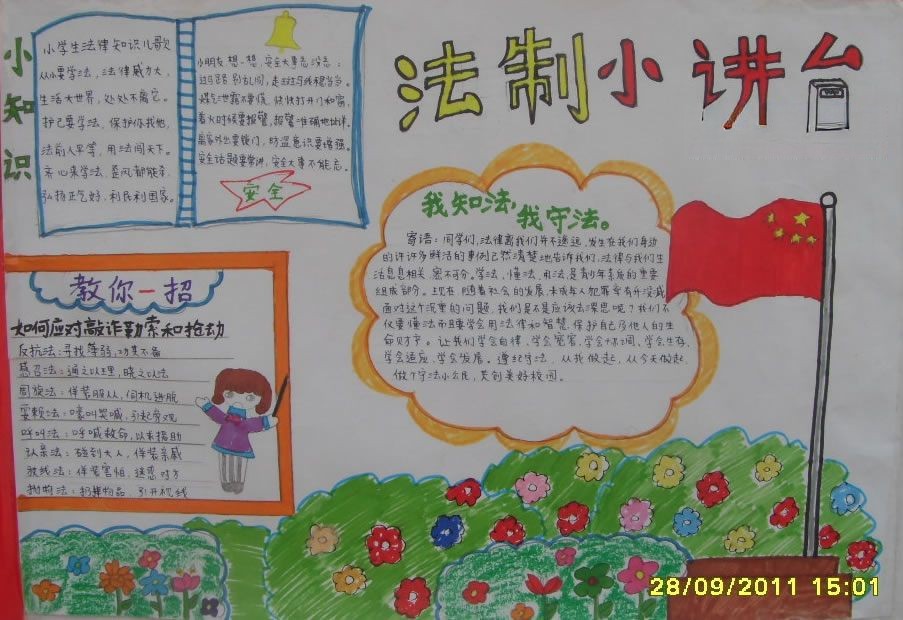 法制小讲台
小知识
小学生法律知识儿歌
从小要学法，法律威力大，
生活大世界，处处不离它。
护己要学法，保护你我他，
法前人平等，用法闯天下。
齐心来学法，歪风都能杀，
弘扬正气好，利民利国家。
小朋友想一想，安全大事忘没忘：
过马路别乱闯，走斑马线稳当当。
煤气泄露不要慌，快快打开门和窗，
着火时候要报警，报警准确地址详。
离家外出要锁门，防盗意识要增强。
安全话题要常讲，安全大事不能忘。
安全
我知法，我守法。
寄语：同学们，法律离我们并不遥远，发生在我们身边
的许许多鲜活的事例已然清楚地告诉我们，法律与我们生
活息息相关，密不可分。学法，懂法，用法，是青少年素质的重要
组成部分。现在，随着社会的发展，未成年人犯罪率有升没减
面对这个沉重的问题，我们是不是应该去深思呢？我们不
仅要懂法而且要学会用法律和智慧，保护自己及他人的生
命财产。让我们学会自律，学会宽容，学会协调，学会生存，
学会适应，学会发展。遵纪守法，从我做起，从今天做起，
做个守法小公民，共创美好校园。
教你一招
如何应对敲诈勒索和抢劫
反抗法：寻找薄弱，功其不备
感召法：通之以理，晓之以法
周旋法：佯装服从，伺机进脱
耍赖法：嚎叫哭喊，引起旁观
呼叫法：呼喊救命，以求援助
认亲法：碰到大人，佯装亲戚
放线法：佯装害怕，迷惑对方
抛物法：扔掉物品，引开视线
28/09/2011 15:01